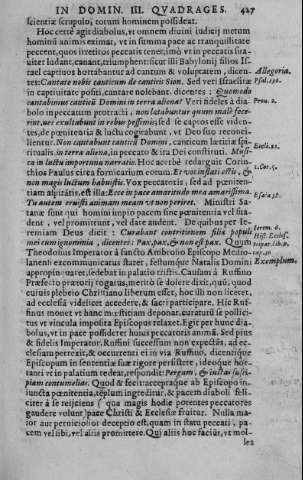 IN DOMIN. III. QUADRAGES. 427
scientiæ scrupulo, totum hominem possideat.
Hoc certè agit diabolus, vt omnem diuini iudicij metum
hominū animis eximat, vt in summa pace ac tranquillitate
peccent, quos irretitos peccatis tenet; imò vt in peccatis sua
uiter ludant, canant, triumphent: sicut illi Babylonij filios Is-
rael captiuos hortabantur ad cantum & voluptatem, dicen-
Allegoria.
tes: Cantate nobis canticum de canticis Sion. Sed veri Israëlitæ
Psal. 136.
in captiuitate positi, cantare nolebant. dicentes: Quomodo
cantabimus canticū Domini in terra aliena? Veri fideles à dia-
Prou. 2.
bolo in peccatum protracti, non lætabuntur quum malè fece-
rint, nec exultabunt in rebus pessimis; sed se captos esse viden-
tes, de pœnitentia & luctu cogitabunt, vt Deo suo reconci-
lientur. Non cantabunt canticū Domini, canticum lætitiæ spi-
Eccli. 22.
ritualis. in terra aliena, in peccato & ira Dei constituti. Musi-
ca in luctu importuna narratio. Hoc acerbè redarguit Corin-
1. Cor. 5.
thios Paulus circa fornicarium eorum. Et vos inflati estis, &
non magis luctum habuistis. Vox peccatoris, sed ad pœniten-
tiam aspirātis, est illa: Ecce in pace amaritudo mea amarissima.
Esaiæ 38.
Tu autem eruisti animam meam vt non periret. Ministri Sa-
tanæ sunt qui homini impio pacem sine pœnitentia vel sua-
dent, vel promittunt, vel date audent. De quibus per Ie-
Ierem. 6.
remiam Deus dicit: Curabant contritionem filiæ populi
Hist. Eccles.
mei cum ignominia, dicentes: Pax, pax, & non est pax. Quum
Theodosius Imperator à sancto Ambrosio Episcopo Medio-
lanensi excommunicatus fuset, festumque Natalis Domini
Exemplum.
appropinquaret, sedebat in palatio tristis. Causam à Ruffino
Præfecto prætorij rogatus, mœrito se dolere dixit, quòd, quod
cuiuis plebeio Christiano liberum esset, hoc illi non liceret,
ad ecclesiā videlicet accedere, & sacri participare. Hîc Ruf-
finus monet vt hanc mœstitiam deponat. curaturū se pollici-
tus vt vincula imposita Episcopus relaxet. Egit per hunc dia-
bolus, vt in pace possideret huius peccatoris animā. Sed pius
& fidelis Imperator, Ruffini successum non expectās, ad ec-
clesiam perrexit, & occurrenti ei in via Ruffino, dicentique
Episcopum in sententia suæ rigore persistere, ideoque hor-
tanti vt in palatium rediret, respondit: Pergam, & iustas susci-
piam contumelias. Quod & fecit: acceptaque ab Episcopo in-
iuncta pœnitentia, tēplum ingreditur, & pacem diaboli feli-
citer à se reijciens (qua magis hodie potentes peccatores
gaudere volunt) pace Christi & Ecclesiæ fruitur. Nulla ma-
ior aut perniciosior deceptio est, quam in statu peccati, pa-
cem vel sibi, vel aliis promittere. Qui aliis hoc facit, vt mol-
les